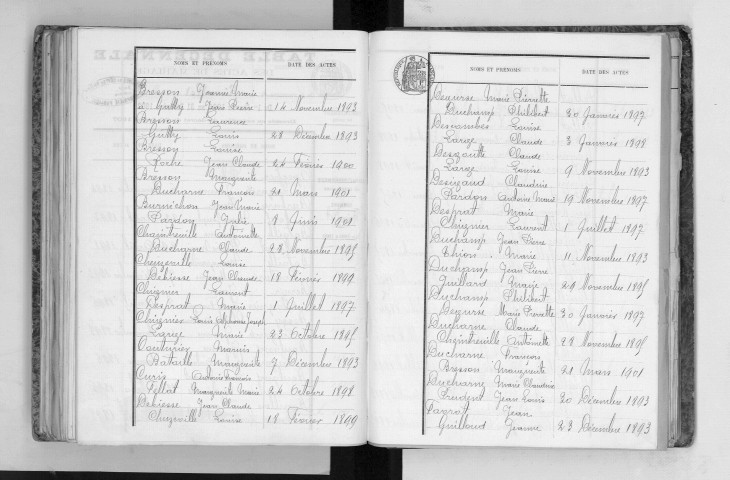 NOMS ET PRÉNOMS DATE DES ACTES
Bresson Jeanne Marie
et Guitty Jean Pierre 14 Novembre 1893
Bresson Laurence
Guitty Louis 28 Décembre 1893
Bresson Louise
Poche Jean Claude 24 Février 1900
Bresson Marguerite
Ducharne François 21 Mars 1901
Burnichon Jean Marie
Pardon Julie 9 Juin 1901
Chaintreuille Antoinette
Ducharne Claude 28 Novembre 1895
Chuzeville Louise
Debiesse Jean Claude 18 Février 1899
Chignier Laurent
Desprat Marie 1 Juillet 1897
Chignier Louis Alphonse Joseph
Large Marie 23 Octobre 1895
Couturier Marius
Bataille Marguerite 7 Décembre 1893
Curis Antoine François
Marguerite Marie 24 Octobre 1898
Debiesse Jean Claude
Chuzeville Louise 18 Février 1899
NOMS ET PRÉNOMS DATE DES ACTES
Degurse Marie Pierrette
Duchamp Philibert 30 Janvier 1897
Descombes Louise
Large Claude 3 Janvier 1898
Desgoutte Claude
Large Louise 9 Novembre 1893
Claudine
Pardon Antoine Marie 19 Novembre 1897
Desprat Marie
Chignier Laurent 1 Juillet 1897
Duchamp Jean Pierre
Thion Marie 11 Novembre 1893
Duchamp Jean Pierre
Guillard Marie 28 Novembre 1895
Duchamp Philibert
Degurse Marie Pierrette 30 Janvier 1897
Ducharne Claude
Chaintreuille Antoinette 28 Novembre 1895
Ducharne François
Bresson Marguerite 21 Mars 1901
Ducharne Marie Claudine
Prudent Jean Louis 20 Décembre 1893
Favrot Jean
Guilloud Jeanne 23 Décembre 1893